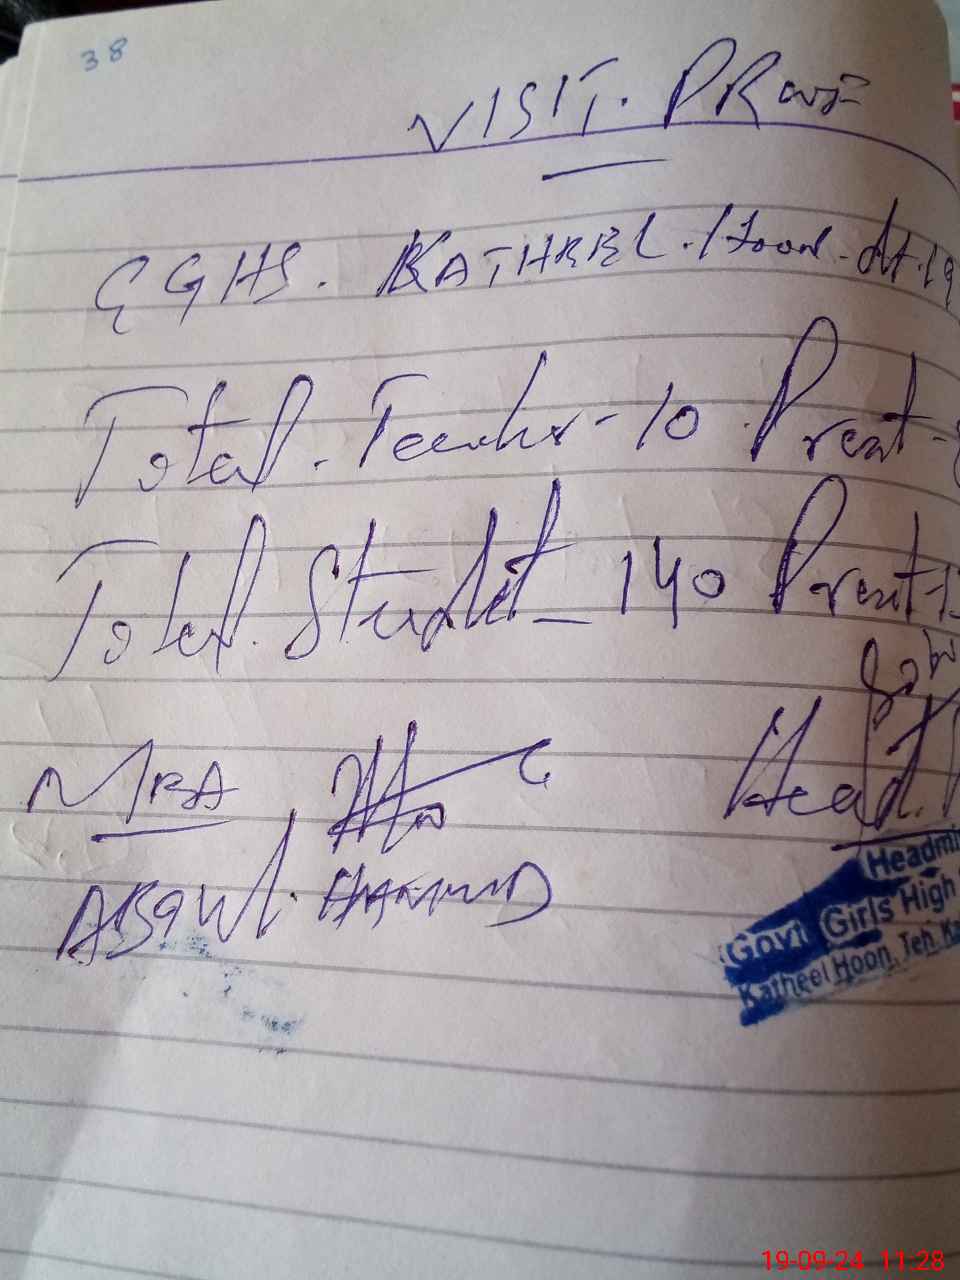 38
VISIT. PRoof
GGHS. KATHEEL. Hoon. dt. 19
Total. Teacher - 10 Presat -
Total. Studet - 140 Presat -
Head.
MEA
ABDUL. HAMMD
Headmi
Govt Girls High
Katheel Hoon, Teh. Ka
19-09-24 11:28